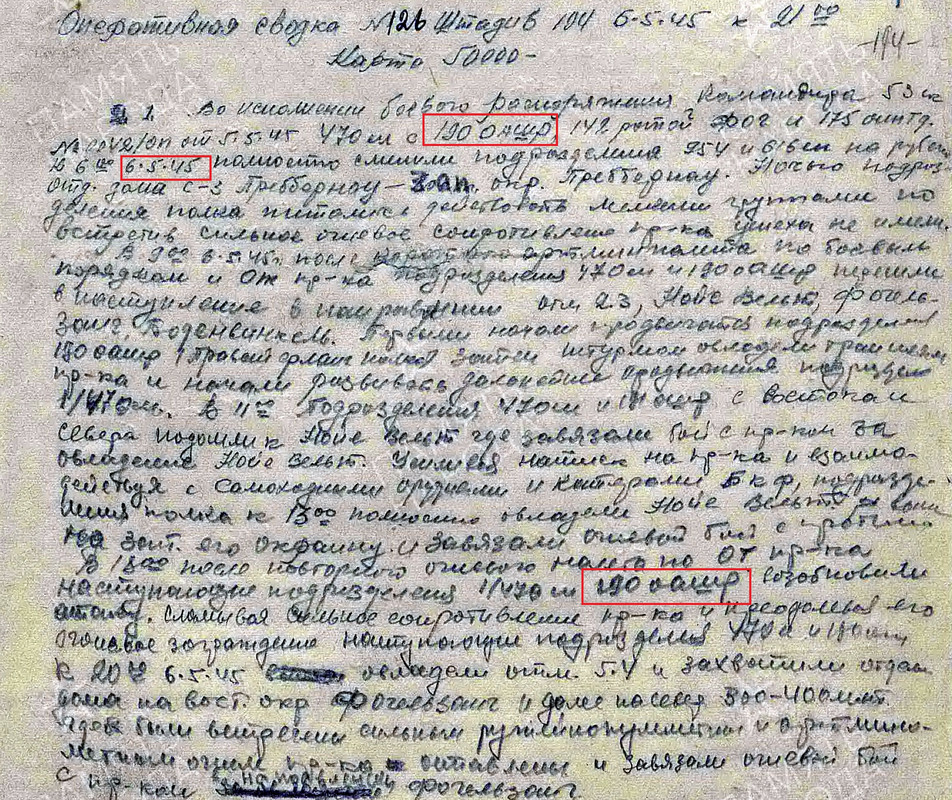 Оперативная сводка №126 Штадив 194 6-5-45 к 21 00
-194-
Карта 50000-
1. Во исполнении боевого распоряжения командира 53 ск
от 5-5-45 470 сп с 190 оашр 142 ротой и 175
к 6 00 6-5-45 полностью сменили подразделения 954 и 616 сп на рубеж
отд. дома с-з Преббернау - зап. окр. Преббернау. Ночью подраз-
деления полка пытались действовать мелкими группами но
встретив сильное огневое сопротивление пр-ка успеха не имели.
В 9 00 6-5-45 после короткого артминналета по боевым
порядкам и От пр-ка подразделения 470 сп и 190 оашр перешли
в наступление в направлении отм 2.3, Нойе Вельт, Фогель-
занг Боденвинкель. Первыми начали продвигатся подразделения
190 оашр правый фланг полка затем штурмом овладели траншеей
пр-ка и начали развивать дальнейшее продвижение подразд
1/470 сп. В 11 00 подразделения 470 сп и 190 оашр с востока и
севера подошли к Нойе Вельт где завязали бой с пр-ком за
овладение Нойе Вельт. Усиливая натиск на пр-ка и взаимо-
действуя с самоходными орудиями и катерами БКФ, подразде-
ления полка к 13 00 полностью овладели Нойе Вельт
зап. его окраину и завязали огневой бой с против
В 18 00 после повторного огневого налета по ОТ пр-ка
наступающие подразделения 1/470 сп 190 оашр возобновили
атаку. Сламывая сильное сопротивление пр-ка и преодолевая его
огневое заграждение наступающие подразделения 470 сп и 190 оашр
к 20 00 6-5-45 овладели отм. 5.4 и захватили отдел
дома на вост. окр Фогельзанг и далее на север 300-400 мт.
где были встречены сильным ружейнопулеметным и артмино-
метным огнем пр-ка оставлены и завязали огневой бой
с пр-ком на направлении Фогельзанг